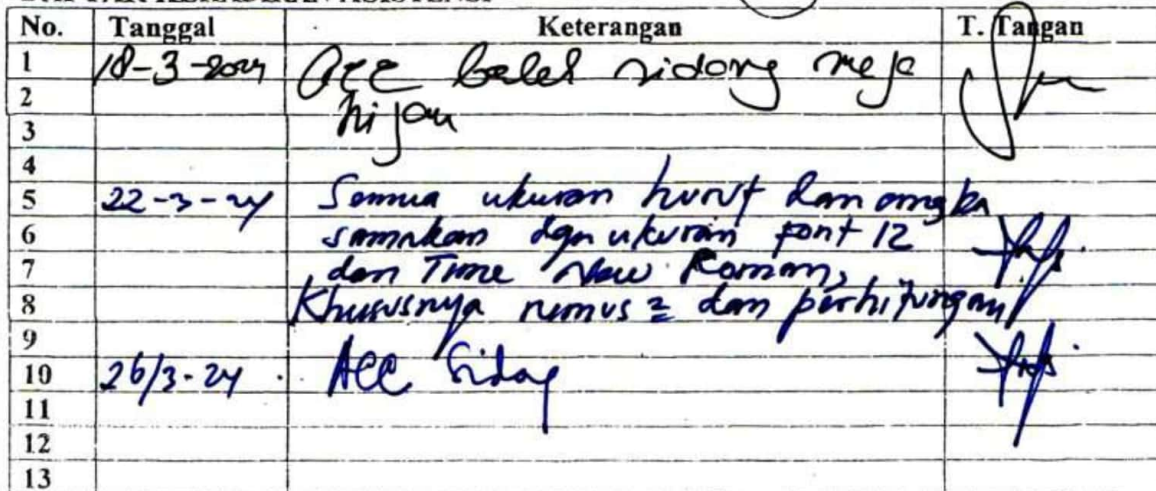 DAFTAR KEHADIRAN ASISTENSI
No. Tanggal Keterangan T. Tangan
1 18-3-2024 Acc sidang meja
2 hijau
3
4
5 22-3-24 Semua ukuran huruf dan angka
6 samakan dgn ukuran font 12
7 dan Time New Roman,
8 Khususnya rumus2 dan perhitungan
9
10 26/3-24 Acc Sidang
11
12
13